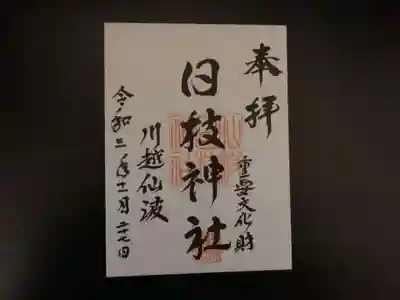 奉拝
重要文化財
日枝神社
川越仙波
令和三年十一月二十七日